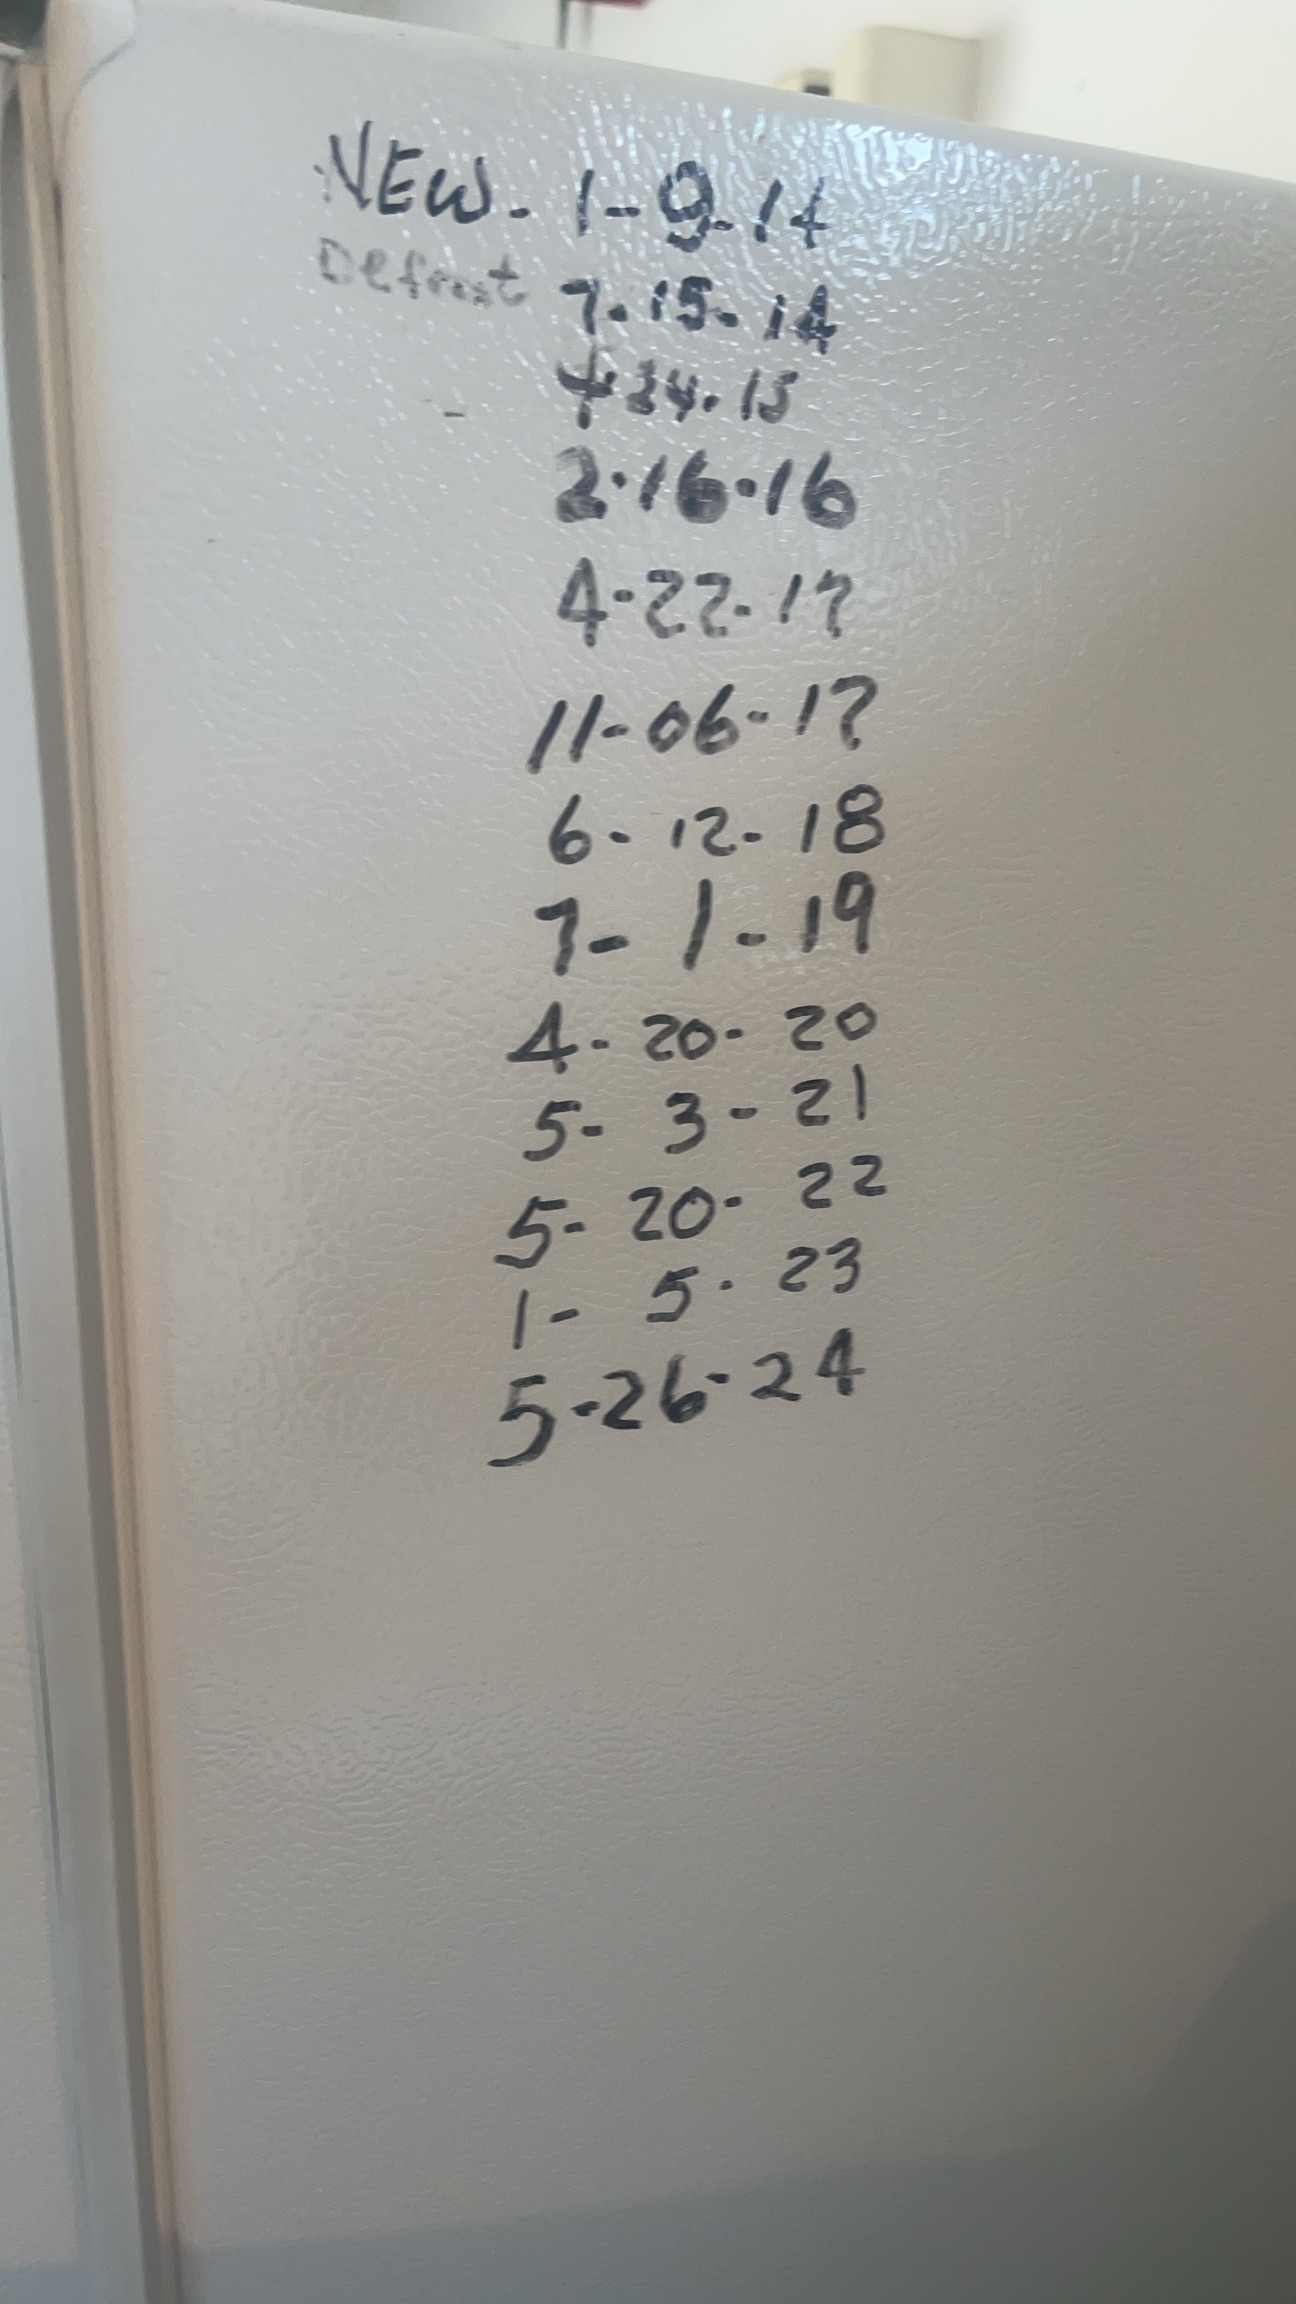 NEW - 1-9-14
Defrost 7-15-14
24.15
2.16.16
4-22-17
11-06-17
6-12-18
7-1-19
4-20-20
5-3-21
5-20-22
1-5-23
5-26-24